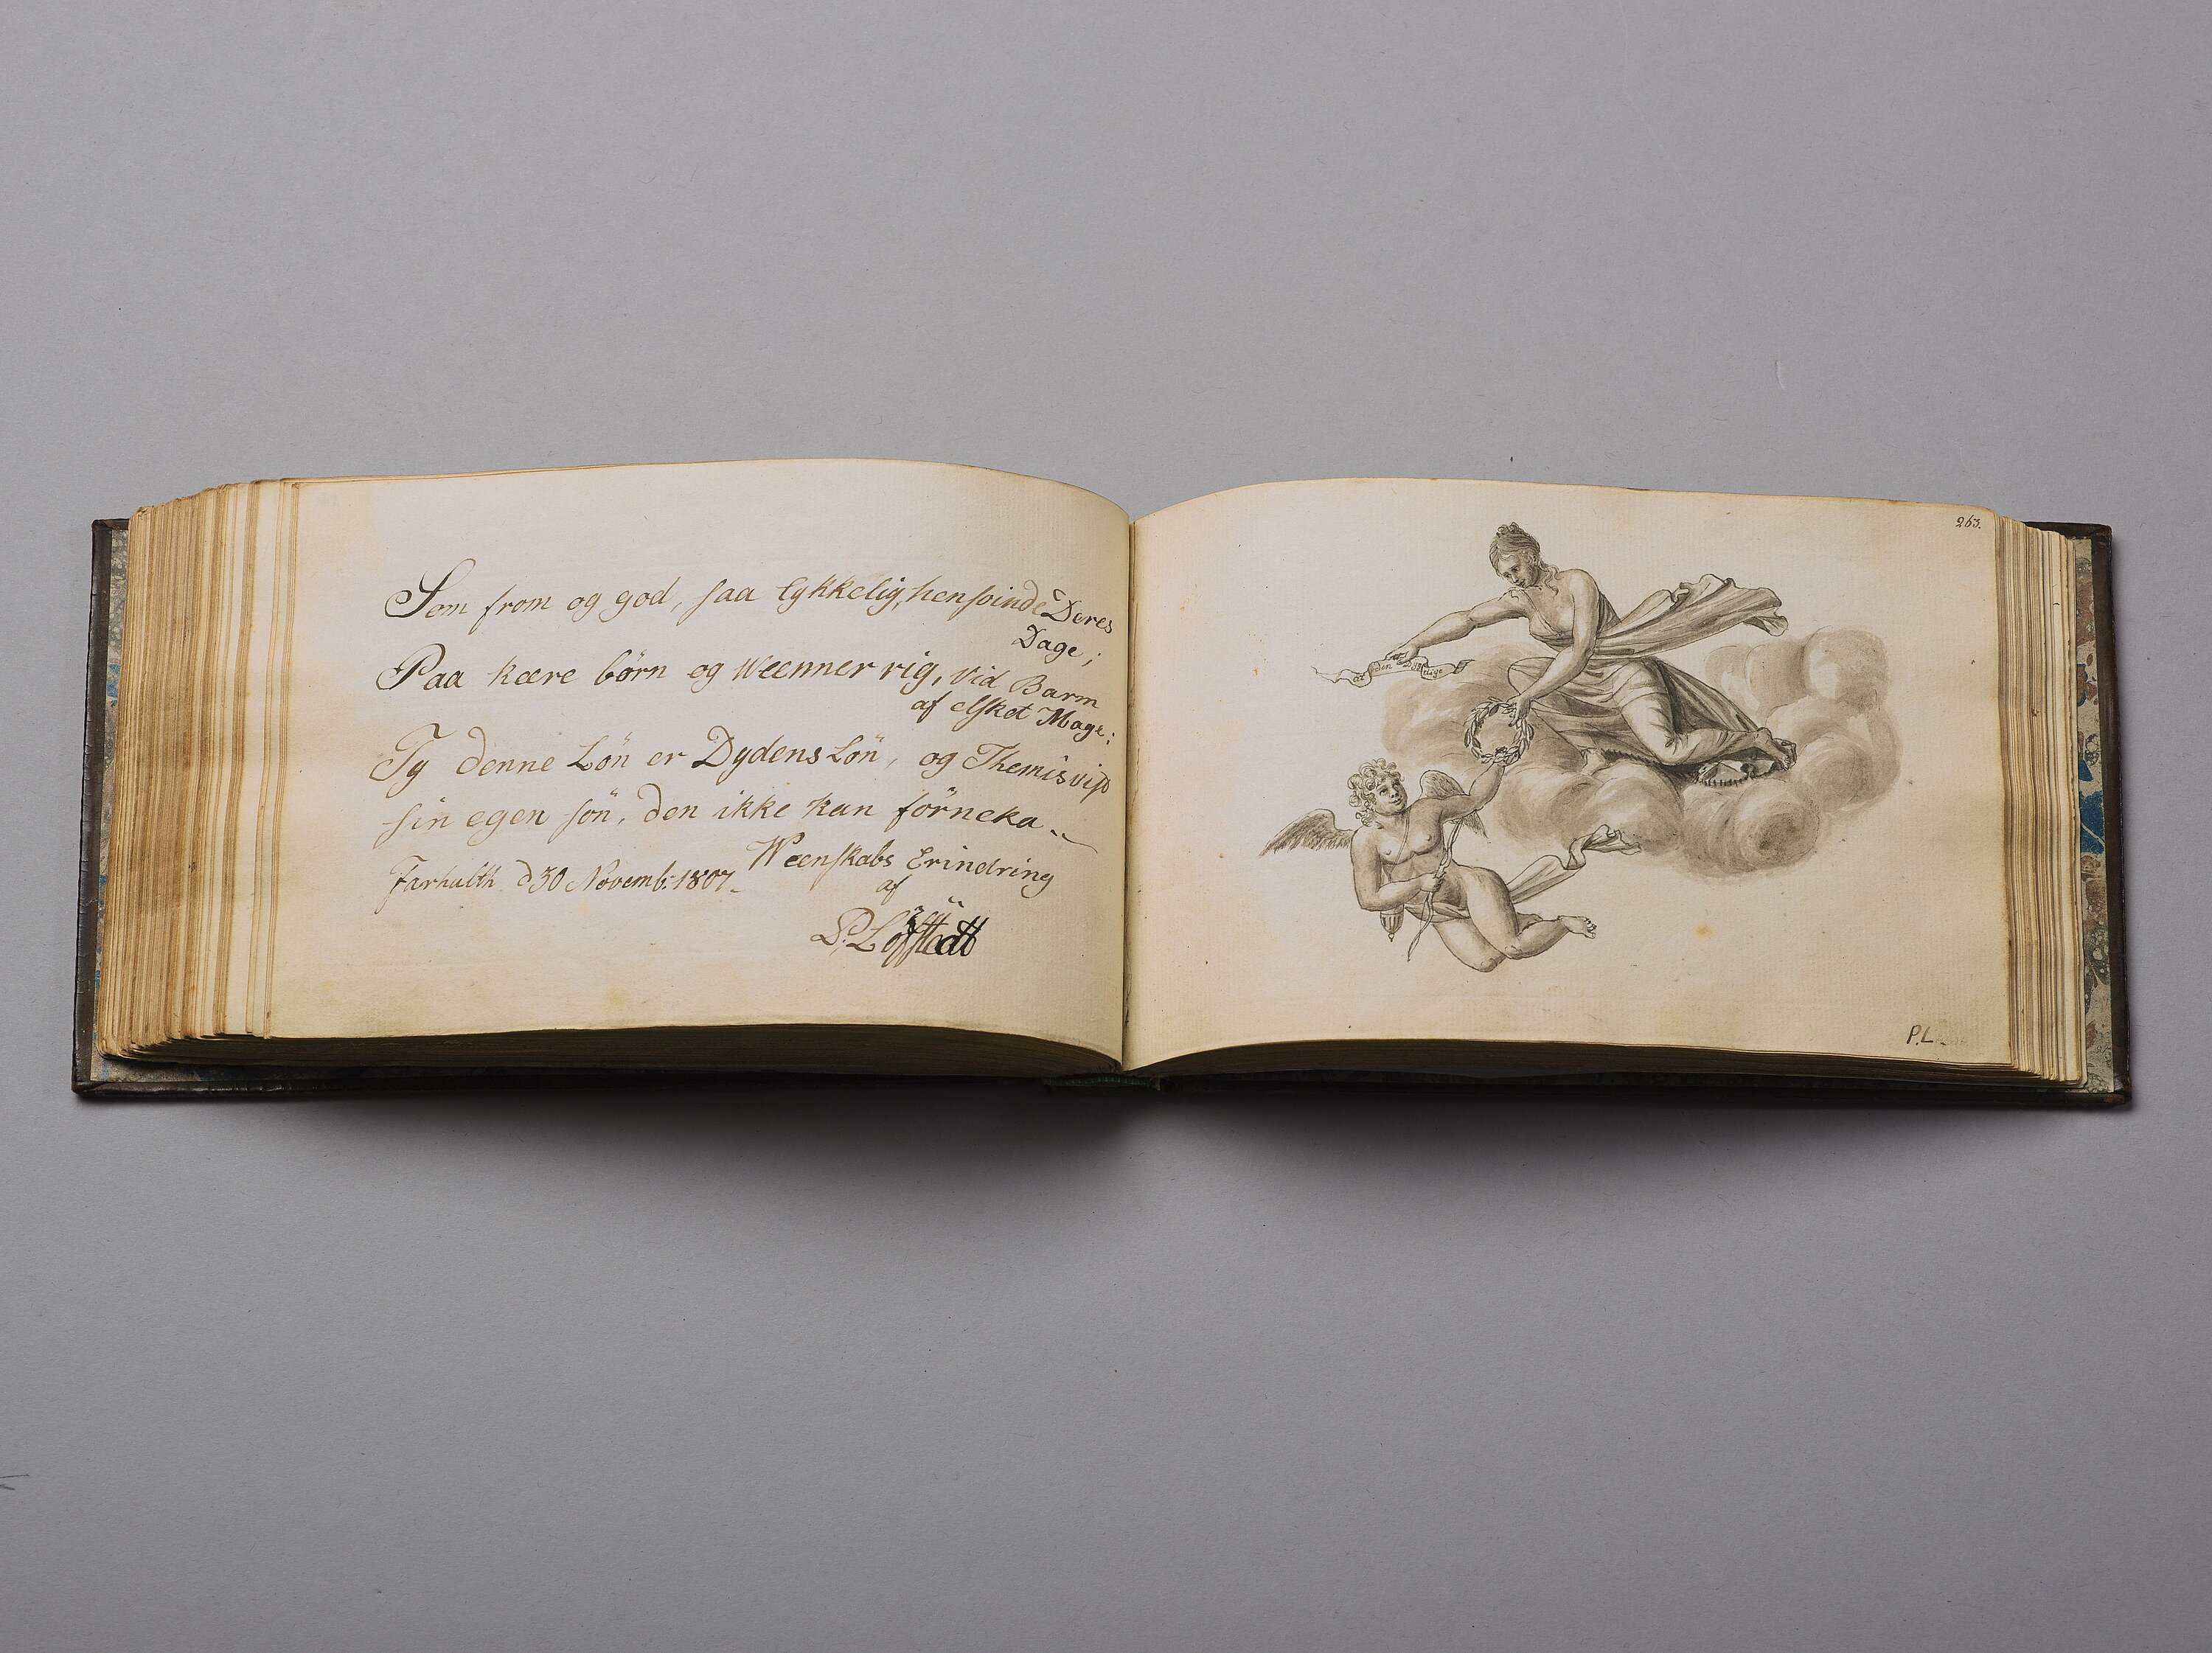 Som from og god, saa lykkelig, hensvinde Deres
Dage;
Paa kære børn og Weenner rig, vid Barm
af elsket Mage;
Ty denne Lön er Dydens Lön, og Themis vis
sin egen sön, den ikke kan förneka.
Farhulth d 30 Novemb: 1807.
Weenskabs Erindring
af
P. Löfstedt
263.
den
P.L.